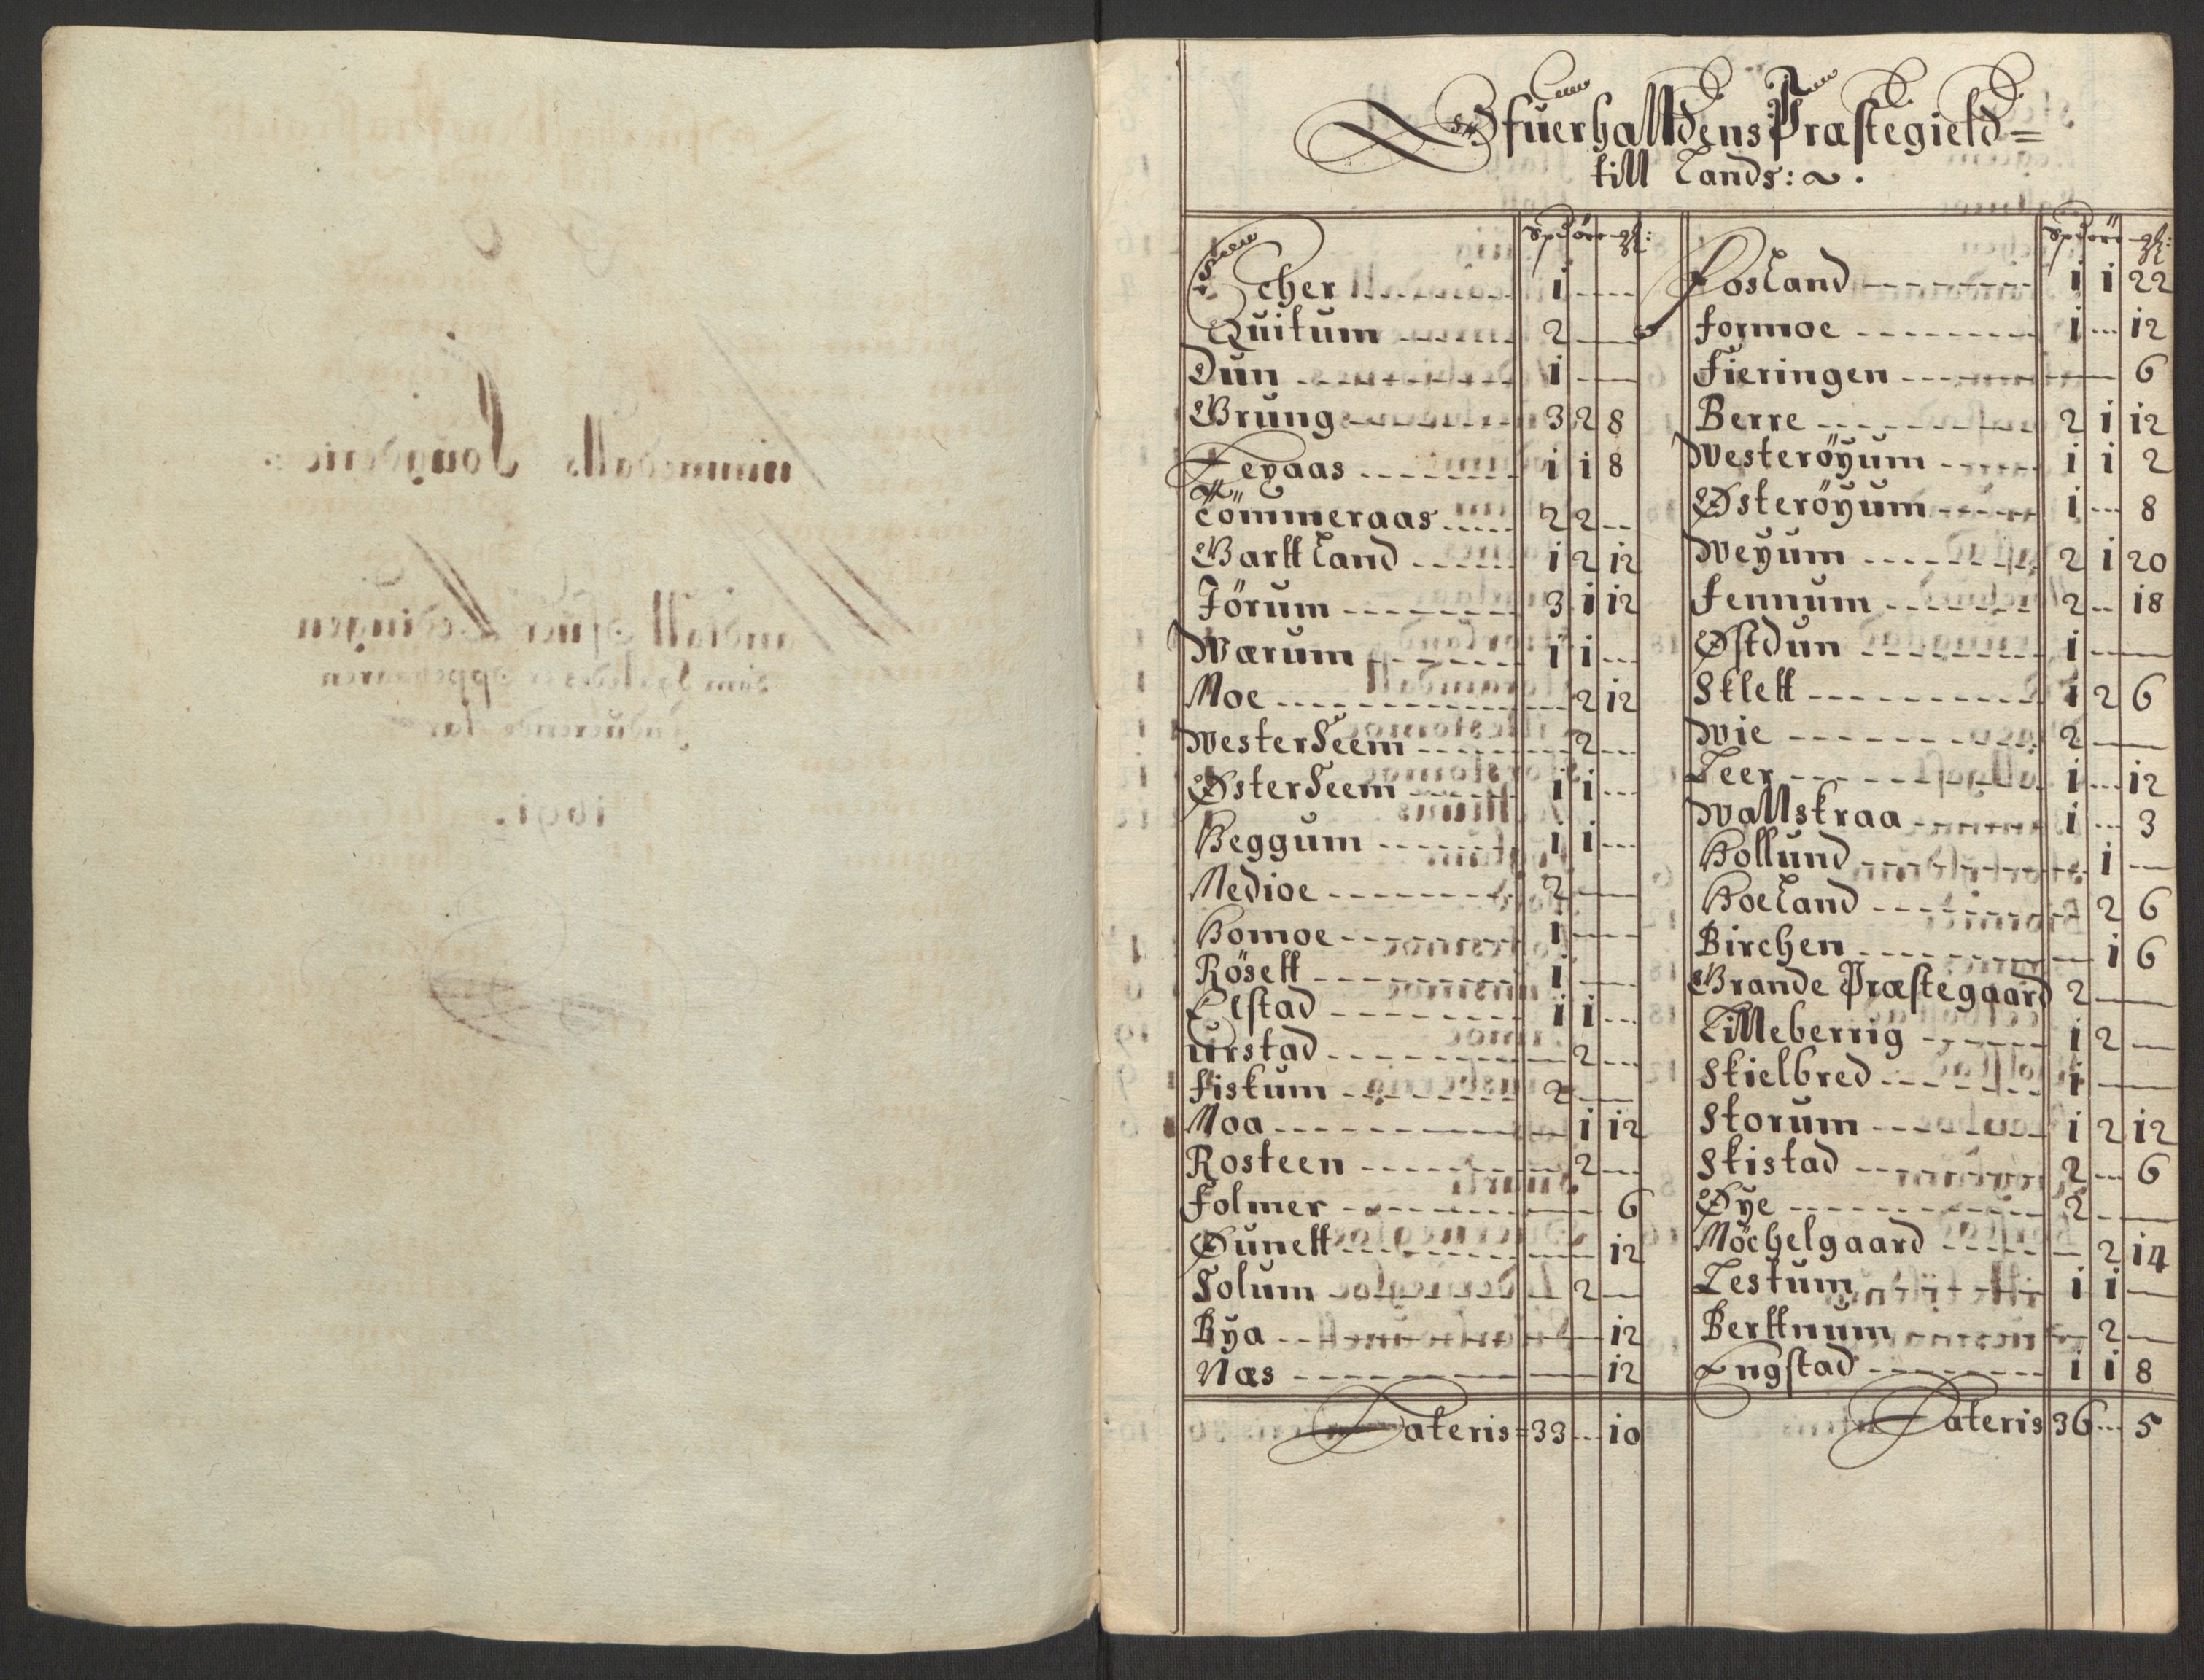 Ofuerhalldens Præstegield=
till Lands:
Spd ört ₰:
Echer 1
Quitum 2
Dun 1
Grung 3 2 8
Fevaas 1 1 8
Tömmeraas 2 2
Gartland 1 2 12
Jörum 3 1 12
Wærum 1 1
Moe 2 12
WesterSeem 2
ØsterSeem 1 1
Heggum 1 1
Medioe 2
Homoe 1
Rösett 1
Elstad 1 1
Urstad 2
Fiskum 2
Moa 1 12
Rosteen 2
Folmer 6
Øunett 12
Solum 2
Bya 12
Næs 12
Lateris 33 10
Spd ört ₰:
Fosland 1 1 22
Formoe 1 12
Fieringen 6
Berre 2 1 12
Westeröyum 1 1 2
Østeröyum 1 8
Weyum 2 1 20
Fennum 2 18
Østdun 1
Sklett 1 2 6
Wie 2
Leer 1 12
Wallskraa 1 3
Hollund 1
Hoeland 2 6
Birchen 1 6
Grande Præstegaard 2
Lilleberrig 1 2
Skielbred 1
Storum 1 2 12
Skistad 2 6
Øye 2
Möchelgaard 2 14
Lestum 1 1
Berttnum 2
Engstad 1 1 8
Lateris 36 5